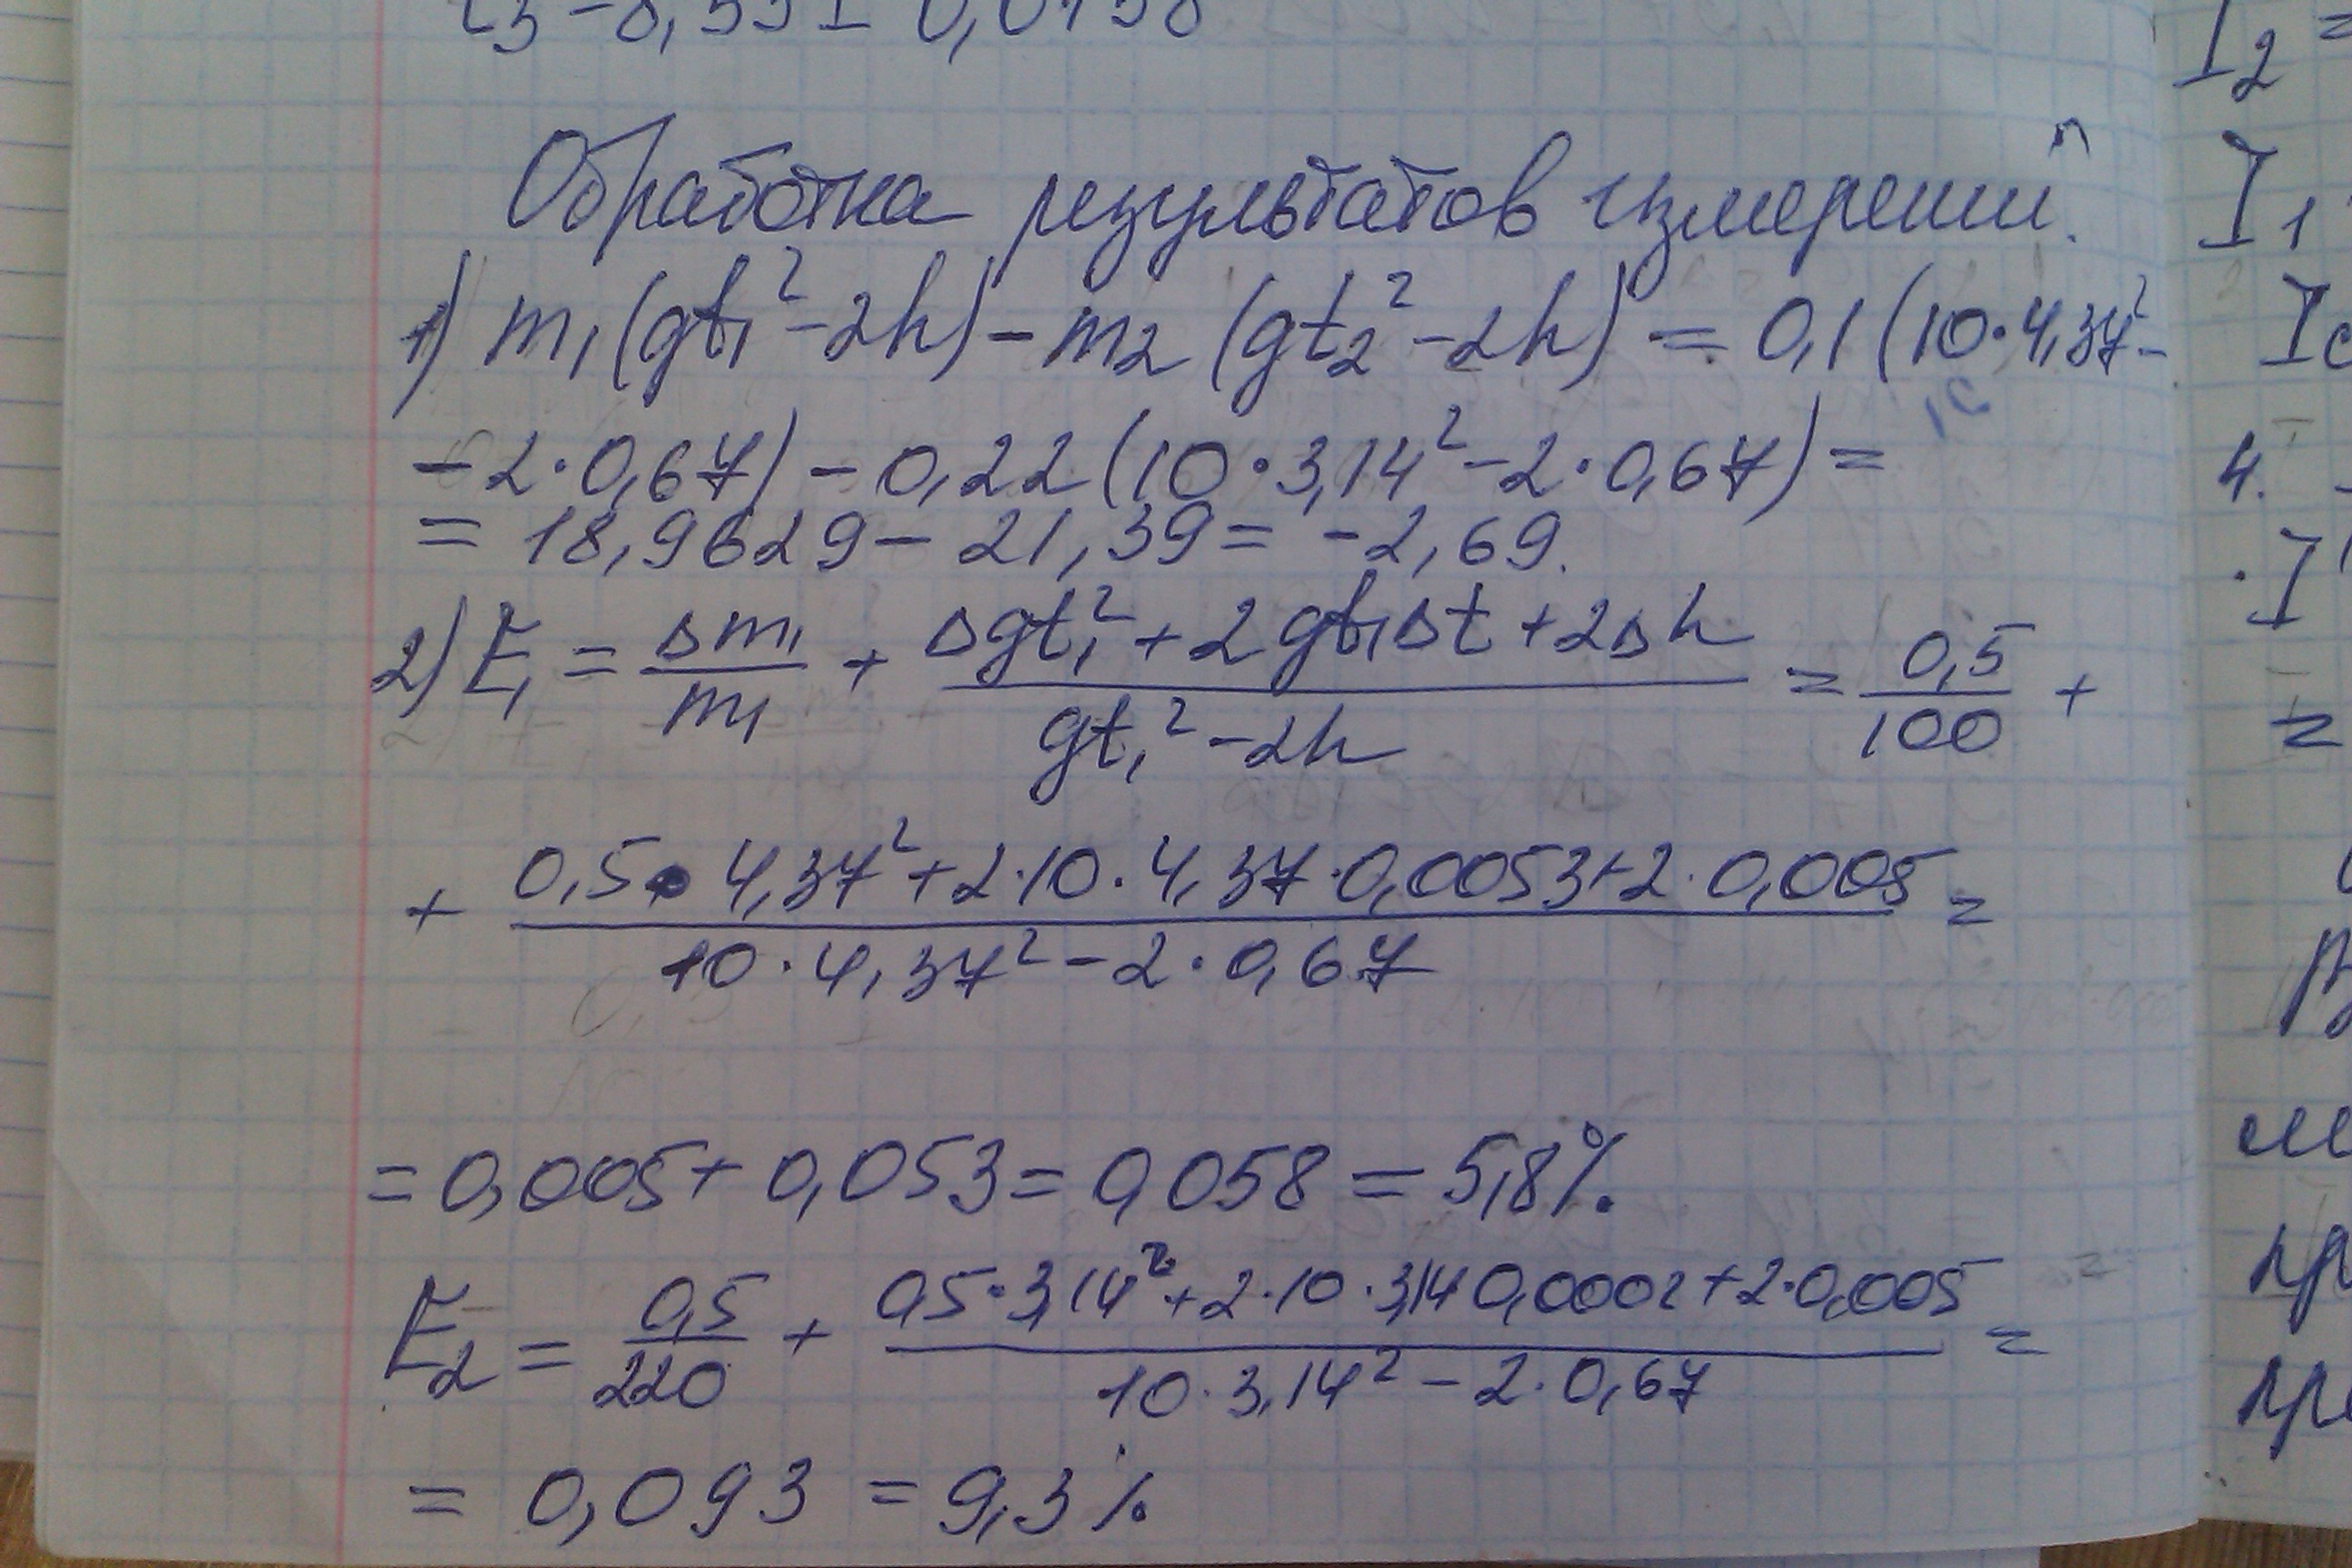 Обработка результатов измерений.
1) m₁(gt₁²-2h)-m₂(gt₂²-2h) = 0,1(10·4,37²-
-2·0,67)-0,22(10·3,14²-2·0,67)=
= 18,9629-21,39= -2,69.
2) E₁ = Δm₁/m₁ + (Δgt₁²+2gt₁Δt+2Δh)/(gt₁²-2h) = 0,5/100 +
+ (0,5·4,37²+2·10·4,37·0,0053+2·0,005)/(10·4,37²-2·0,67) =
= 0,005+0,053=0,058=5,8%.
E₂ = 0,5/220 + (0,5·3,14²+2·10·3,14 0,0002+2·0,005)/(10·3,14²-2·0,67) =
= 0,093 = 9,3%
I₂ =
I₁
4.